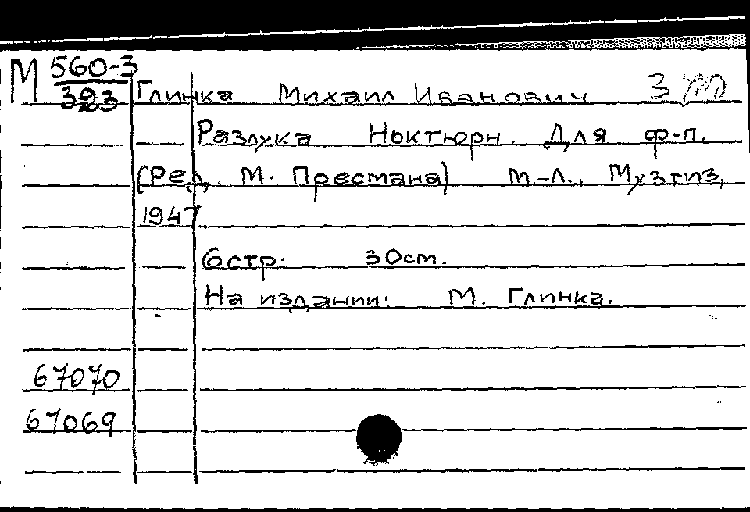 М 560-3
323
Глинка Михаил Иванович 3
Разлука Ноктюрн. Для ф-п.
(Ред. М. Престмана) М-Л., Музгиз,
1947
6стр. 30см.
На издании: М. Глинка.
67070
67069